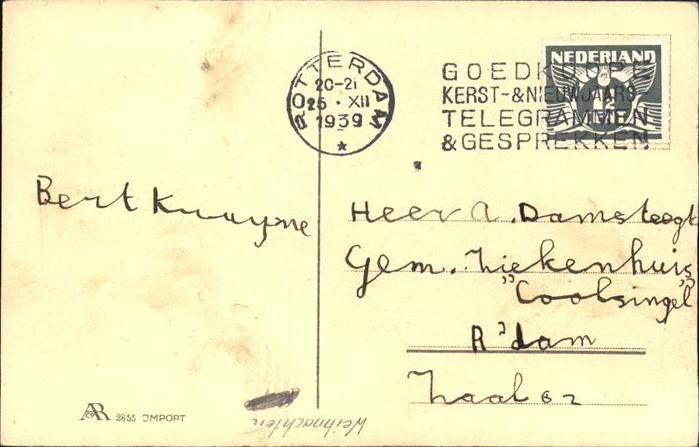 ROTTERDAM
20-21
25 · XII
1939
GOEDKOOPE
KERST-&NIEUWJAARS
TELEGRAMMEN
&GESPREKKEN
NEDERLAND
Bert
Heer A. Damsteegt
Gem. Ziekenhuis
"Coolsingel"
R'dam
Zaal 62
AR 2855 IMPORT
Weihnachten